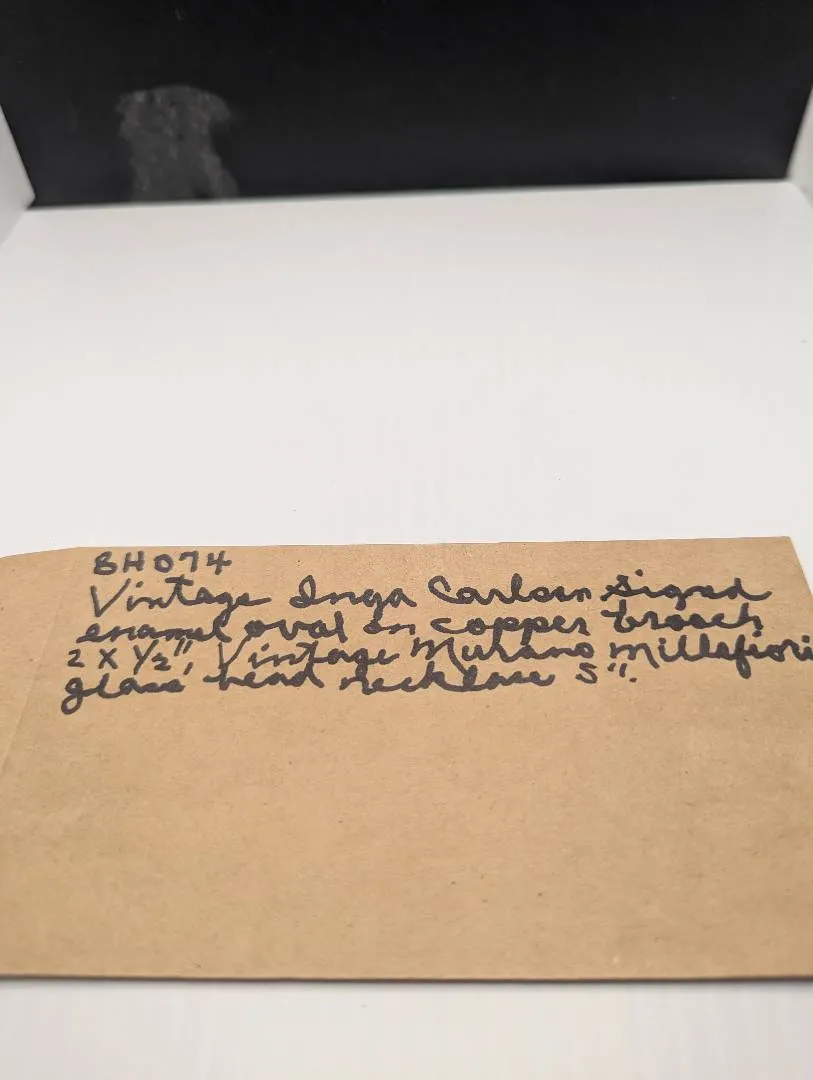 BH074
Vintage Inga Carlsen Signed
enamel oval on copper brooch
2 x 1/2", Vintage Murano Millefiori
glass bead necklace 5".